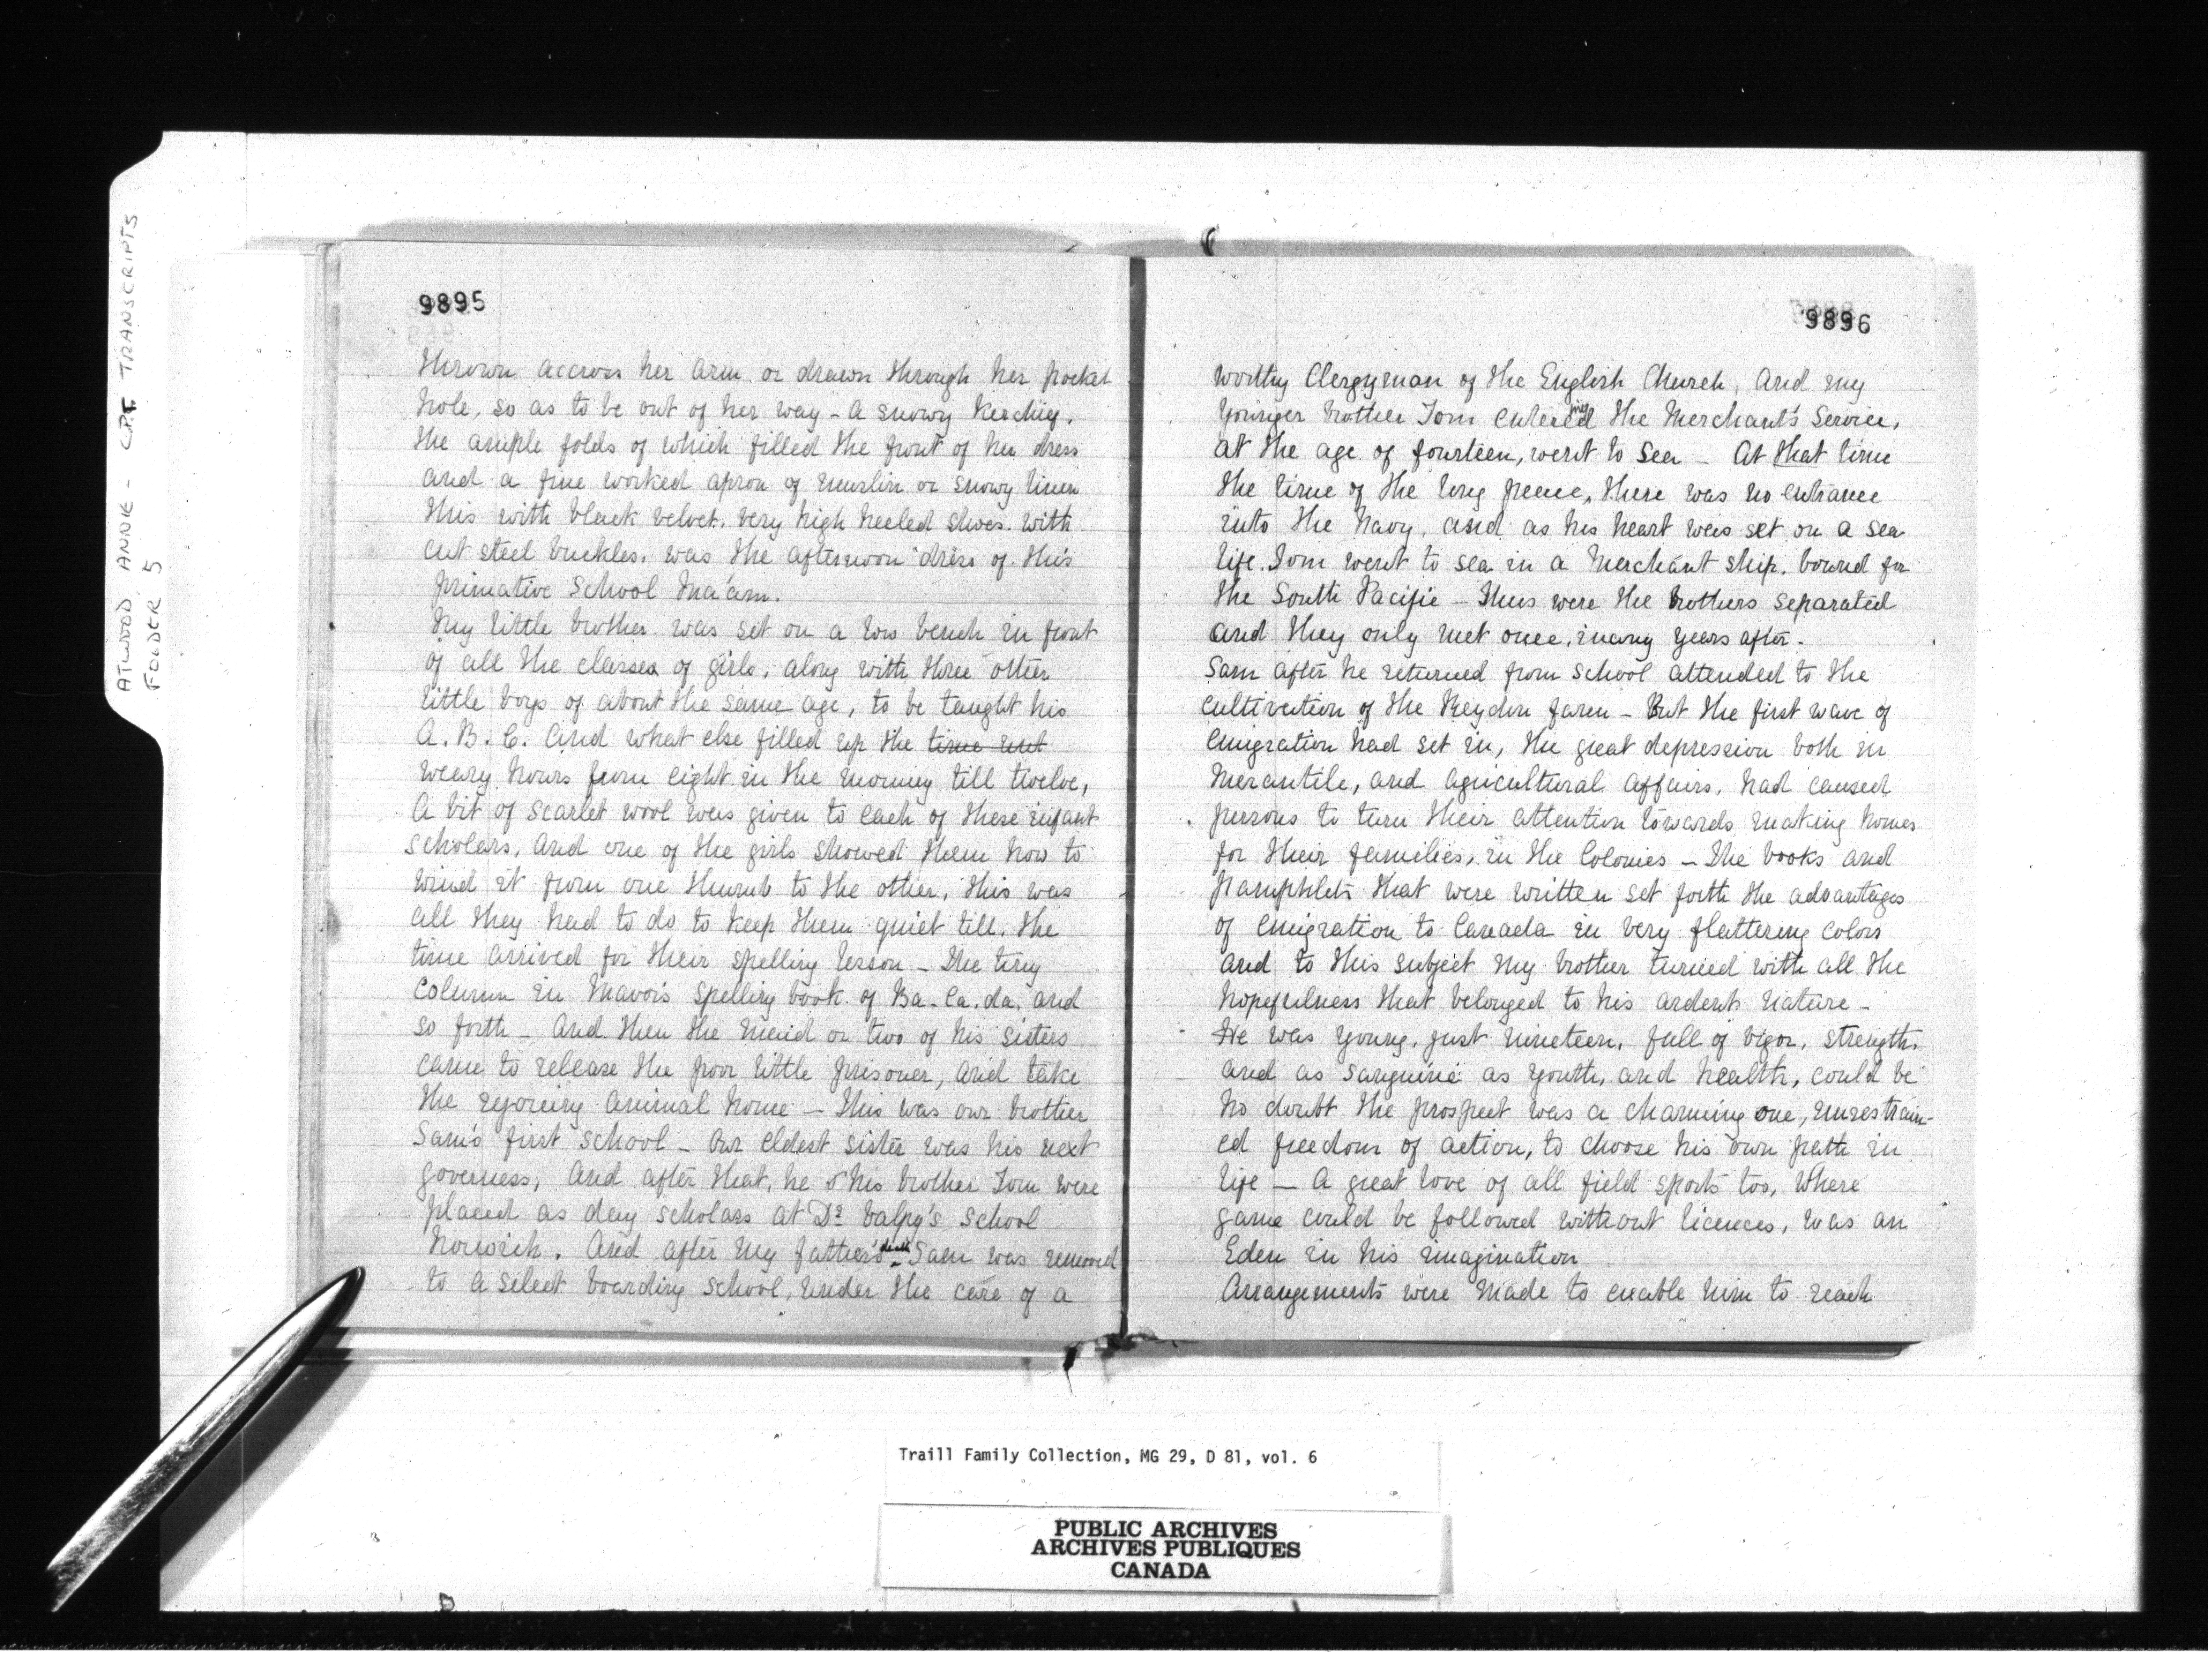 ATWOOD, ANNIE - CPT TRANSCRIPTS
FOLDER 5
9895
thrown accross her arm or drawn through her pocket
hole, so as to be out of her way - A snowy kerchief,
the ample folds of which filled the front of her dress
and a fine worked apron of muslin or snowy linen
this with black velvet, very high heeled shoes with
cut steel buckles, was the afternoon dress of this
primative School Ma'am.
My little brother was set on a low bench in front
of all the classes of girls, along with three other
little boys of about the same age, to be taught his
A. B. C. and what else filled up the time but
weary hours from eight in the morning till twelve,
A bit of scarlet wool was given to each of these infant
scholars, and one of the girls showed them how to
wind it from one thumb to the other, this was
all they had to do to keep them quiet till the
time arrived for their spelling lesson - The tiny
column in Mavors spelling book of Ba. Ca. da. and
so forth - And then the maid or two of his sisters
came to release the poor little prisoner, and take
the rejoicing animal home - This was our brother
Sam's first school - Our eldest sister was his next
governess, And after that, he & his brother Tom were
placed as day scholars at Dr Valpy's School
Norwich. And after my father's death Sam was removed
to a select boarding school, under the care of a
9896
worthy Clergyman of the English Church, And my
younger brother Tom entered ing the Merchant's Service,
at the age of fourteen, went to sea - At that time
the time of the long peace, there was no entrance
into the Navy, and as his heart was set on a sea
life. Tom went to sea in a Merchant ship, bound for
the South Pacific - Thus were the brothers separated
and they only met once, many years after.
Sam after he returned from school attended to the
cultivation of the Reydon farm - But the first wave of
emigration had set in, the great depression both in
Mercantile, and agricultural affairs, had caused
persons to turn their attention towards making homes
for their families, in the Colonies - The books and
pamphlets that were written set forth the advantages
of emigration to Canada in very flattering colors
and to this subject my brother turned with all the
hopefulness that belonged to his ardent nature -
He was young, just nineteen, full of vigor, strength,
and as sanguine as youth, and health, could be
No doubt the prospect was a charming one, unrestrain-
ed freedom of action, to choose his own path in
life - A great love of all field sports too, where
game could be followed without licences, was an
Eden in his imagination
Arrangements were made to enable him to reach
Traill Family Collection, MG 29, D 81, vol. 6
PUBLIC ARCHIVES
ARCHIVES PUBLIQUES
CANADA